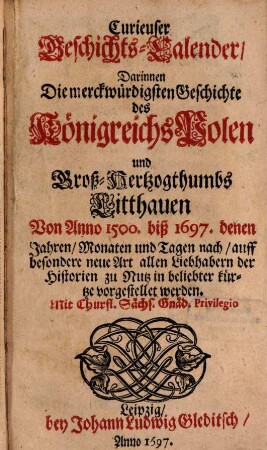 Curieuser
Geschichts-Calender/
Darinnen
Die merckwürdigsten Geschichte
des
Königreichs Polen
und
Groß-Hertzogthumbs
Litthauen
Von Anno 1500. biß 1697. denen
Jahren/Monaten und Tagen nach/auff
besondere neue Art allen Liebhabern der
Historien zu Nutz in beliebter kür-
tze vorgestellet werden.
Mit Churfl. Sächs. Gnäd. Privilegio
Leipzig/
bey Johann Ludwig Gleditsch/
Anno 1697.